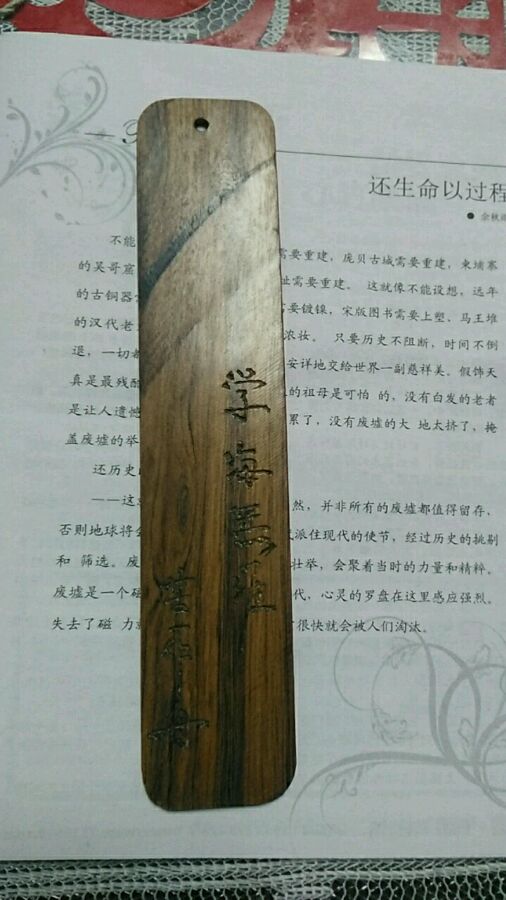 还生命以过程
● 余秋雨
不能
需要重建，庞贝古城需要重建，柬埔寨
的吴哥窟
址需要重建。 这就像不能设想，远年
的古铜器
要镀镍，宋版图书需要上塑、马王堆
的汉代老
浓妆。 只要历史不阻断，时间不倒
退，一切
安详地交给世界一副慈祥美。假饰天
真是最残酷
的祖母是可怕 的，没有白发的老者
是让人遗憾
累了，没有废墟的大 地太挤了，掩
盖废墟的举
还历史
——这
然，并非所有的废墟都值得留存，
否则地球将会
派往现代的使节，经过历史的挑剔
和 筛选。废
壮举，会聚着当时的力量和精粹。
废墟是一个磁
代，心灵的罗盘在这里感应强烈。
失去了磁 力就
很快就会被人们淘汰。
学海无涯